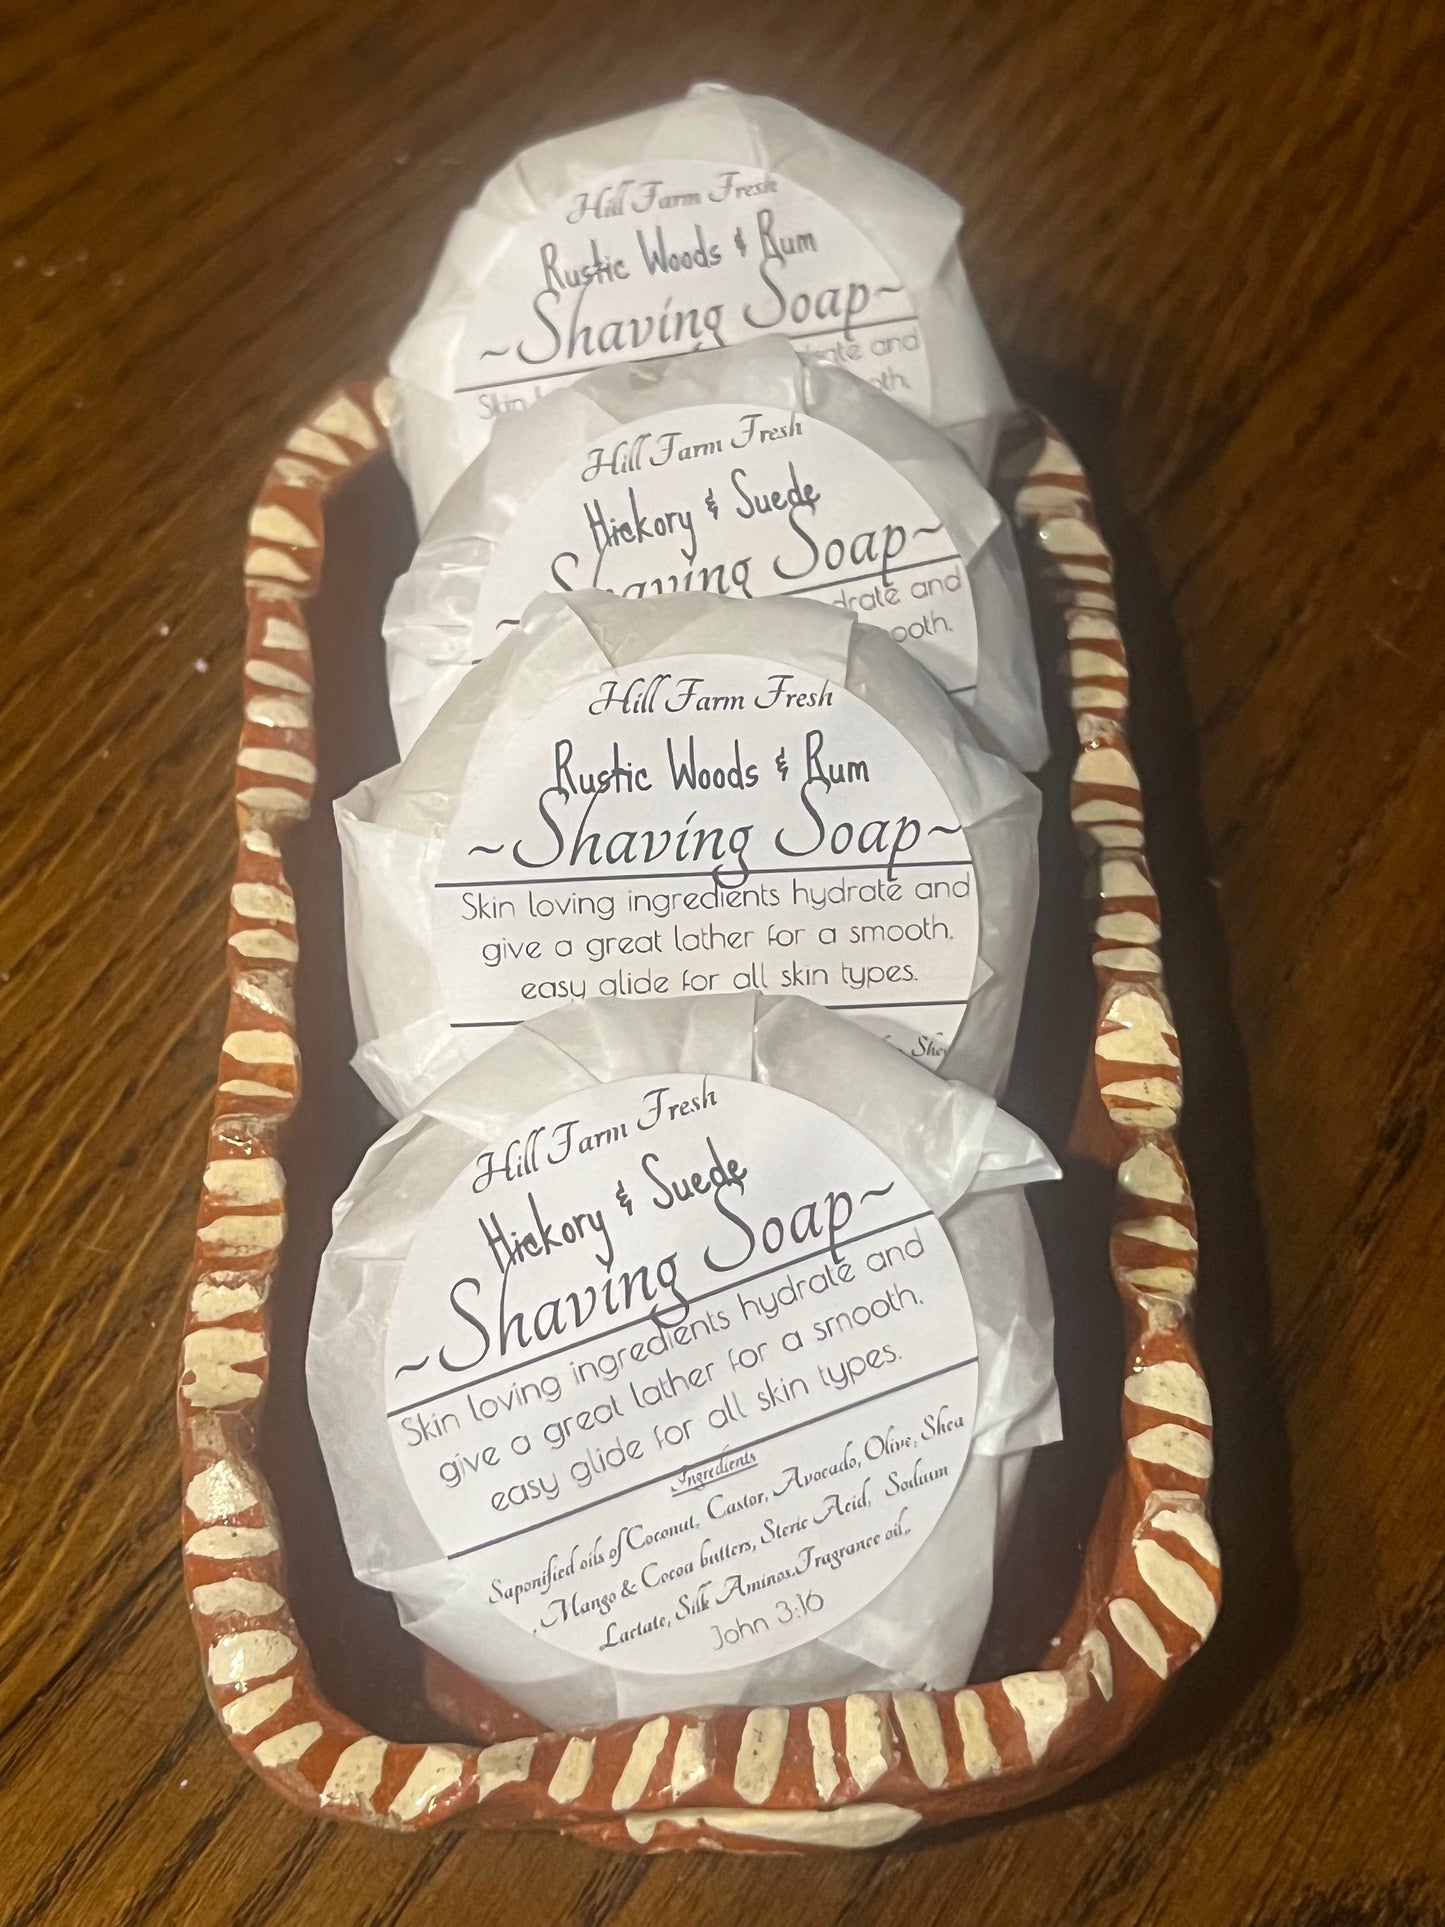 Hill Farm Fresh
Rustic Woods & Rum
~Shaving Soap~
Skin
and
Hill Farm Fresh
Hickory & Suede
~Shaving Soap~
drate and
ooth.
Hill Farm Fresh
Rustic Woods & Rum
~Shaving Soap~
Skin loving ingredients hydrate and
give a great lather for a smooth,
easy glide for all skin types.
She
Hill Farm Fresh
Hickory & Suede
~Shaving Soap~
Skin loving ingredients hydrate and
give a great lather for a smooth,
easy glide for all skin types.
Ingredients
Saponified oils of Coconut, Castor, Avocado, Olive, Shea
, Mango & Cocoa butters, Steric Acid, Sodium
Lactate, Silk Aminos, Fragrance oil,.
John 3:16